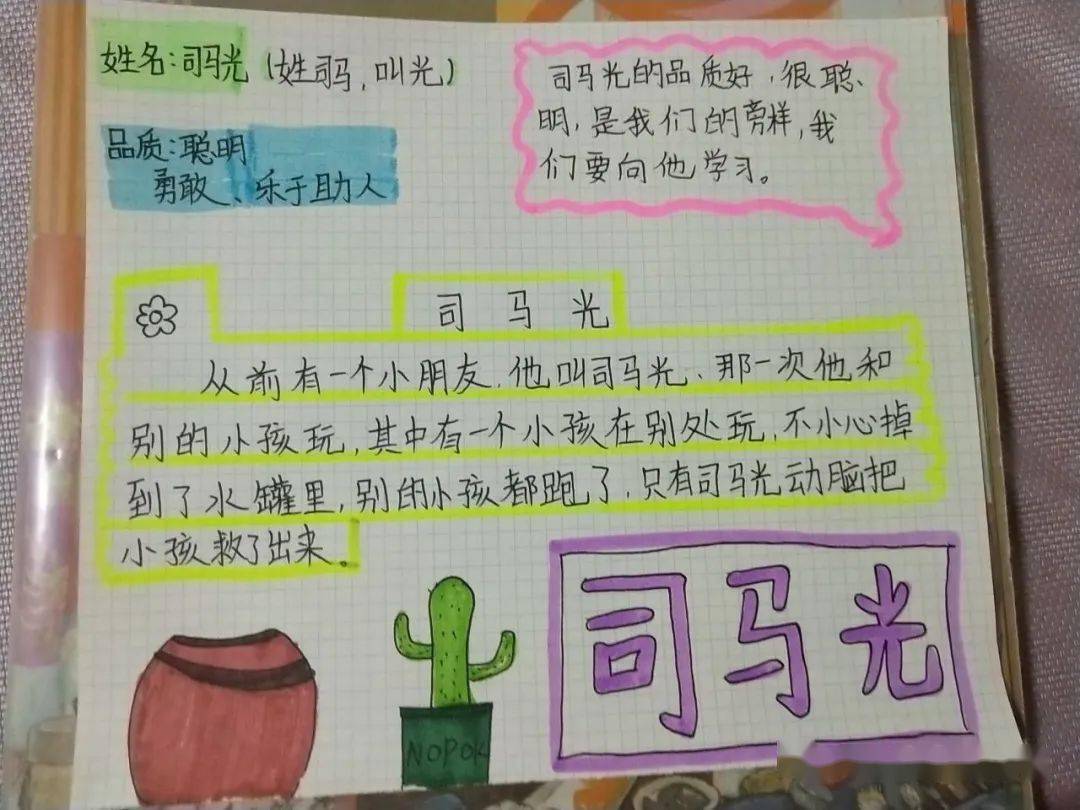 姓名:司马光(姓司马,叫光)
品质:聪明
勇敢、乐于助人
司马光的品质好,很聪、
明,是我们的旁样,我
们要向他学习。
司马光
从前有一个小朋友,他叫司马光、那一次他和
别的小孩玩,其中有一个小孩在别处玩,不小心掉
到了水罐里,别的小孩都跑了,只有司马光动脑把
小孩救了出来。
NOPOK
司马光